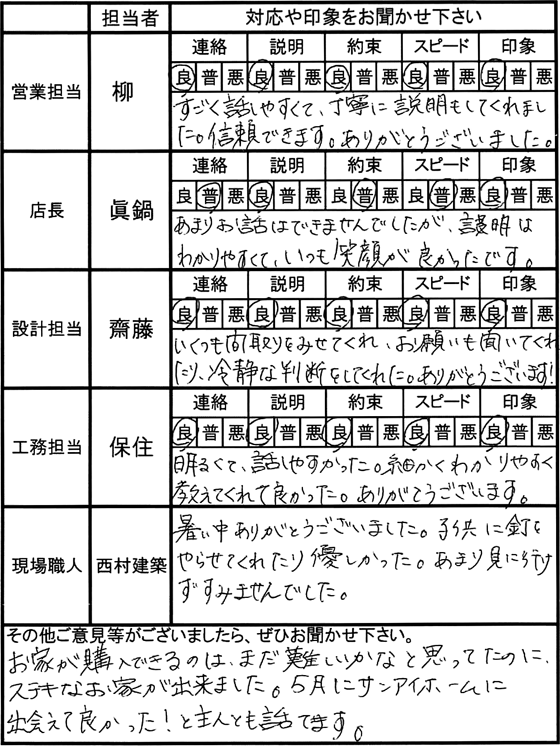 担当者 対応や印象をお聞かせ下さい
連絡 説明 約束 スピード 印象
営業担当 柳 良 普 悪 良 普 悪 良 普 悪 良 普 悪 良 普 悪
すごく話しやすくて、丁寧に説明もしてくれまし
た。信頼できます。ありがとうございました。
連絡 説明 約束 スピード 印象
店長 眞鍋 良 普 悪 良 普 悪 良 普 悪 良 普 悪 良 普 悪
あまりお話はできませんでしたが、説明は
わかりやすくて、いつも笑顔が良かったです。
連絡 説明 約束 スピード 印象
設計担当 齋藤 良 普 悪 良 普 悪 良 普 悪 良 普 悪 良 普 悪
いくつも間取りをみせてくれ、お願いも聞いてくれ
たり、冷静な判断をしてくれた。ありがとうございます!
連絡 説明 約束 スピード 印象
工務担当 保住 良 普 悪 良 普 悪 良 普 悪 良 普 悪 良 普 悪
明るくて、話しやすかった。細かくわかりやすく
教えてくれて良かった。ありがとうございます。
現場職人 西村建築 暑い中ありがとうございました。子供に釘を
やらせてくれたり優しかった。あまり見に行け
ずすみませんでした。
その他ご意見等がございましたら、ぜひお聞かせ下さい。
お家が購入できるのは、まだ難しいかなと思ってたのに、
ステキなお家が出来ました。5月にサンアイホームに
出会えて良かった!と主人とも話てます。